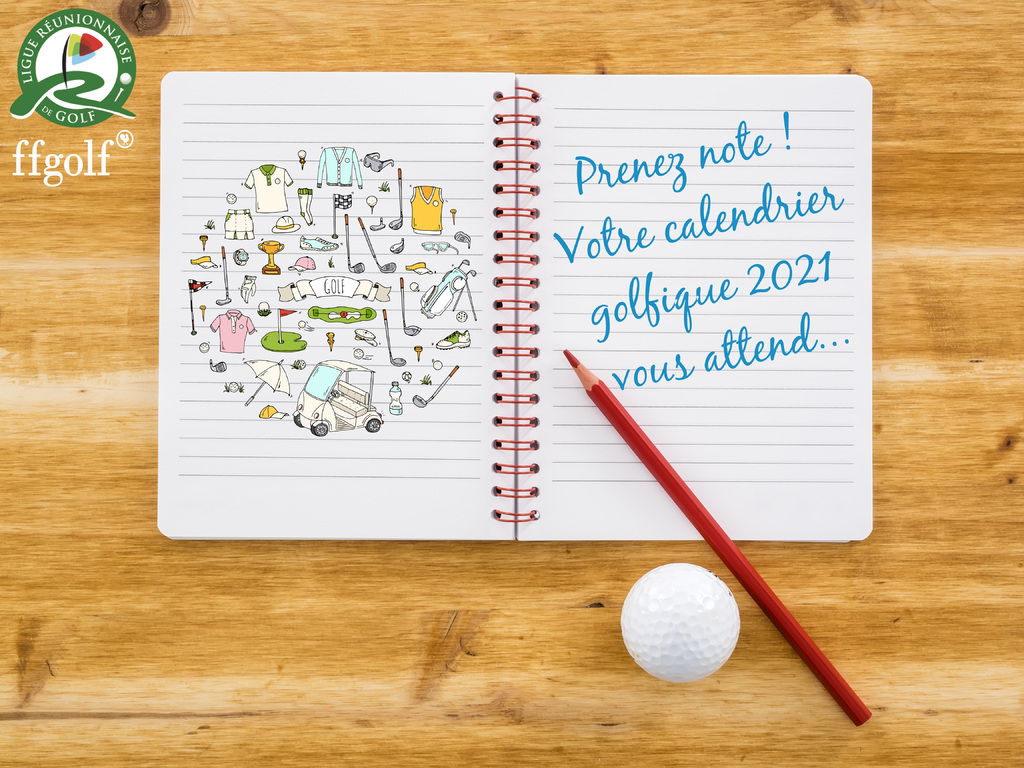 LIGUE RÉUNIONNAISE
DE GOLF
ffgolf
GOLF
Prenez note !
Votre calendrier
golfique 2021
vous attend...